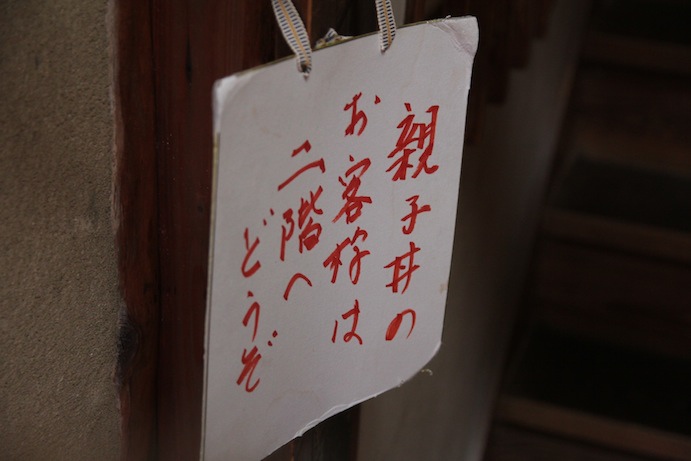 親子丼の
お客様は
二階へ
どうぞ